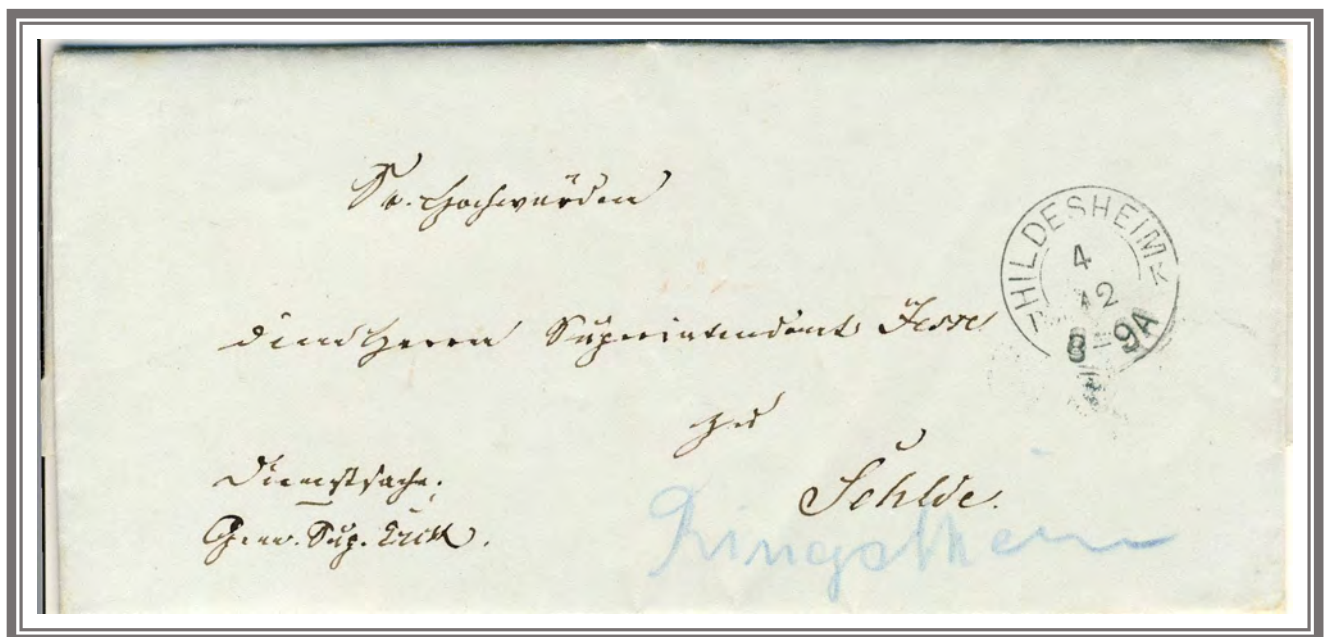 Sr. Hochwürden
HILDESHEIM
4
12
8-9A
dem Herrn Superintendent
zu
Sehlde.
Dienstsache.
Gen. Sup.
Ringelheim